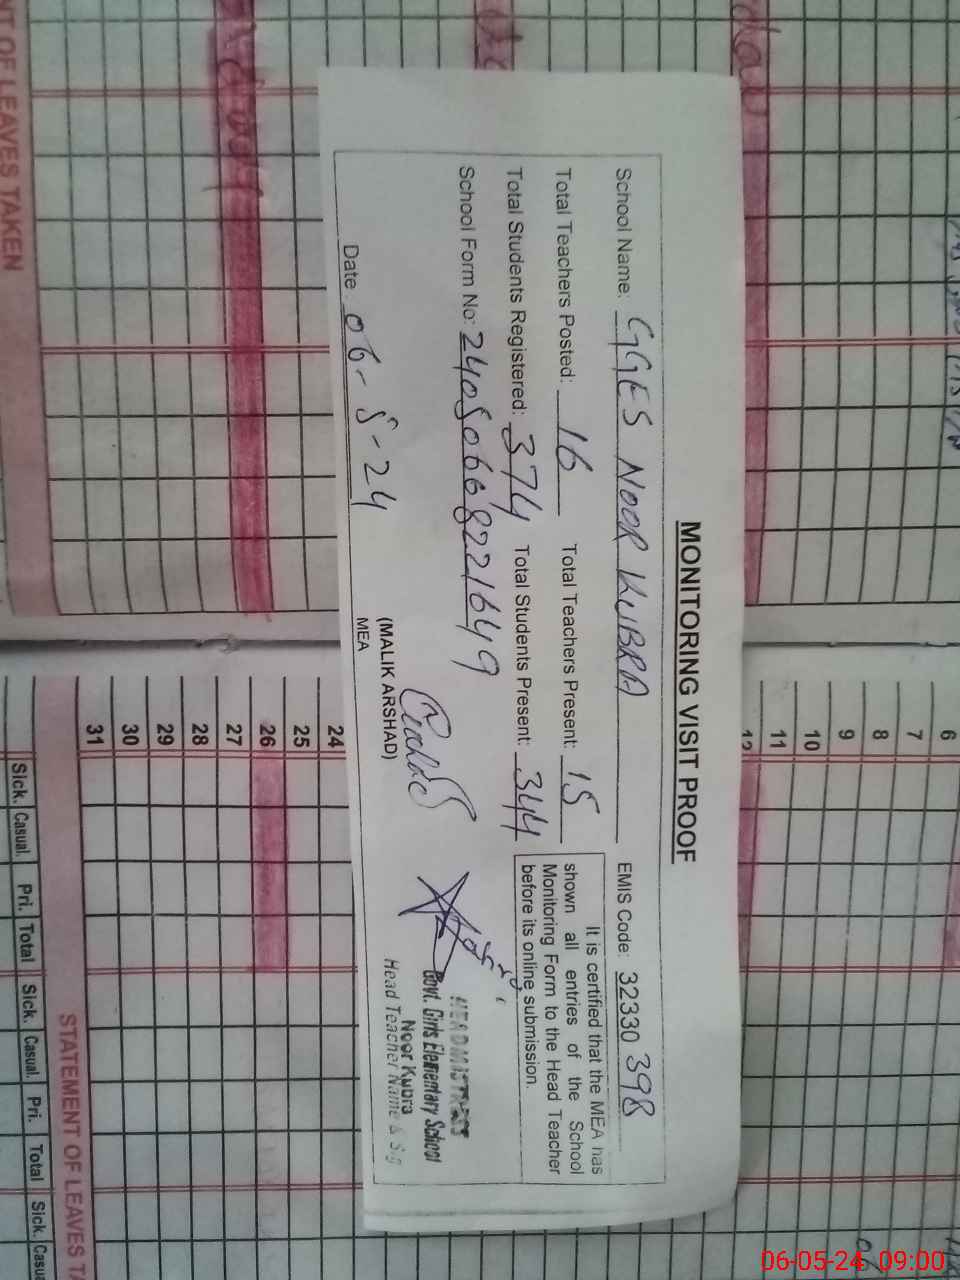 MONITORING VISIT PROOF
School Name: GGES NOOR KUBRA EMIS Code: 32330 398
Total Teachers Posted: 16 Total Teachers Present: 15
Total Students Registered: 374 Total Students Present: 344
School Form No: 24050668221649
It is certified that the MEA has
shown all entries of the School
Monitoring Form to the Head Teacher
before its online submission.
Date 06-5-24
(MALIK ARSHAD)
MEA
HEADMISTRESS
Govt. Girls Elementary School
Noor Kubra
Head Teacher Name & Sig
T OF LEAVES TAKEN
6
7
8
9
10
11
12
24
25
26
27
28
29
30
31
Sick. Casual. Pri. Total Sick. Casual. Pri. Total Sick. Casua
STATEMENT OF LEAVES TA
06-05-24 09:00